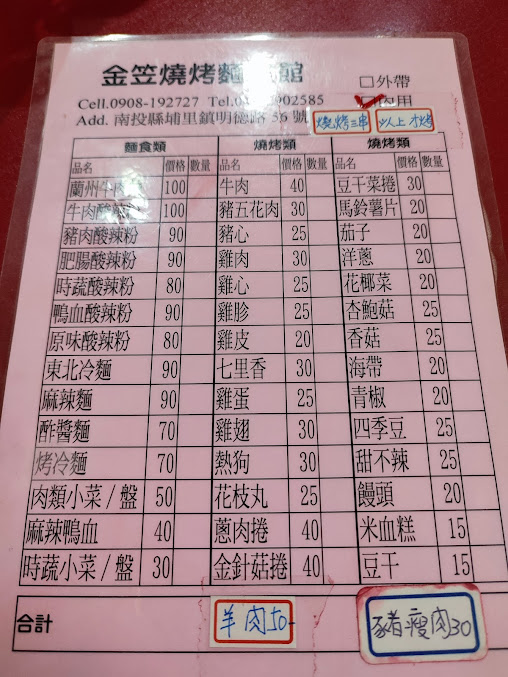 金笠燒烤麵 館 □外帶
Cell.0908-192727 Tel.0 902585 內用
Add. 南投縣埔里鎮明德路 56 號 燒烤三串 以上才烤
麵食類 燒烤類 燒烤類
品名 價格 數量 品名 價格 數量 品名 價格 數量
蘭州牛肉 100 牛肉 40 豆干菜捲 30
牛肉酸辣粉 100 豬五花肉 30 馬鈴薯片 20
豬肉酸辣粉 90 豬心 25 茄子 20
肥腸酸辣粉 90 雞肉 30 洋蔥 20
時蔬酸辣粉 80 雞心 25 花椰菜 20
鴨血酸辣粉 90 雞胗 25 杏鮑菇 25
原味酸辣粉 80 雞皮 20 香菇 25
東北冷麵 90 七里香 30 海帶 20
麻辣麵 90 雞蛋 25 青椒 20
酢醬麵 70 雞翅 30 四季豆 25
烤冷麵 70 熱狗 30 甜不辣 25
肉類小菜/盤 50 花枝丸 25 饅頭 20
麻辣鴨血 40 蔥肉捲 40 米血糕 15
時蔬小菜/盤 30 金針菇捲 40 豆干 15
合計 羊肉50- 豬瘦肉30